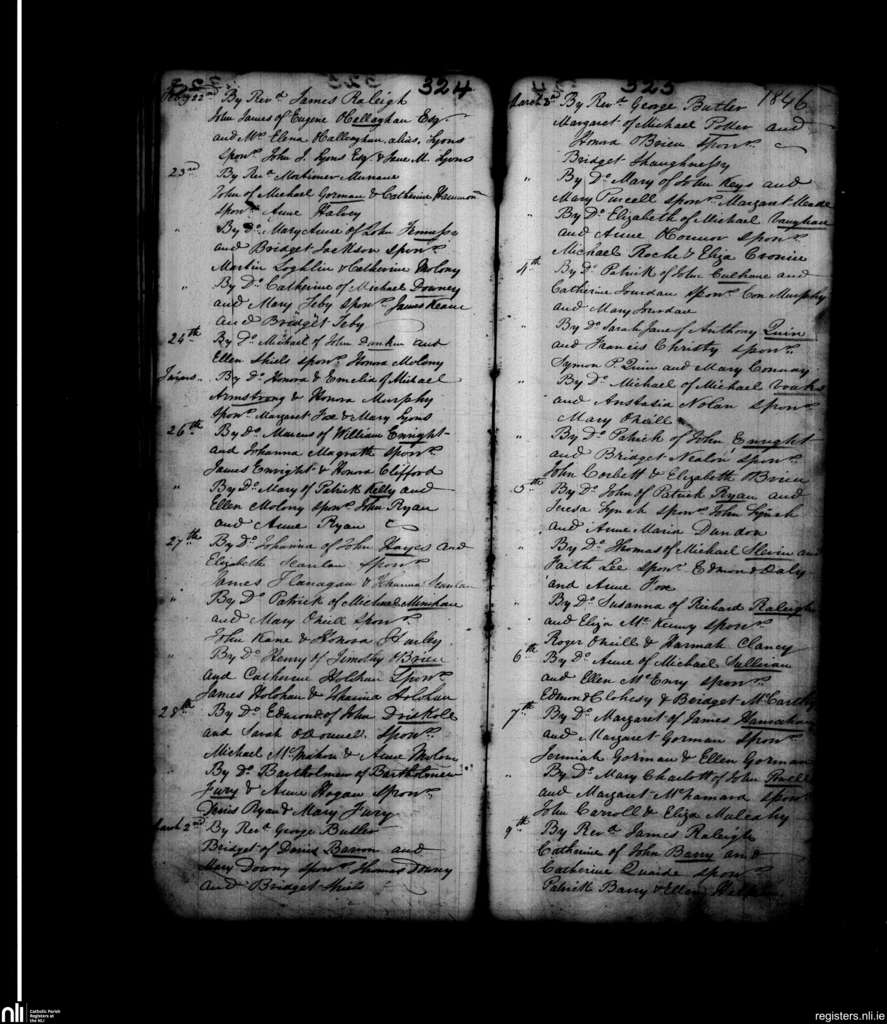 324
Feby 22nd By Revd. James Raleigh
John James of Eugene OCallaghan Esq
and Mrs Elena OCallaghan, alias, Lyons
sponrs John J. Lyons Esq & Jane M. Lyons
23rd By Revd. Mortimer
John of Michael Gorman & Catherine
sponrs Anne Halvey
" By Do. Mary Anne of John
and Bridget Jackson sponrs
Martin Loghlin & Catherine Molony
" By Do. Catherine of Michael Downey
and Mary Feby sponrs James Keane
and Bridget Feby
24th By Do. Michael of John and
Ellen Shiels sponrs Honora Molony
By Do. Honora & Emelia of Michael
Armstrong & Honora Murphy
sponrs Margaret Fox & Mary Lyons
26th By Do. Marcus of William Enright
and Johanna Magrath sponrs
James Enright & Honora Clifford
" By Do. Mary of Patrick Kelly and
Ellen Molony sponrs John Ryan
and Anne Ryan
27th By Do. Johanna of John Hayes and
Elizabeth Hanlon sponrs
James Flanagan & Hanlon
" By Do. Patrick of Michael Minihan
and Mary Oneill sponrs
John Kane & Honora Hurley
" By Do. Henry of Timothy OBrien
and Catherine Holohan sponrs
James Holohan & Johanna Holohan
28th By Do. Edmond of John Driskoll
and Sarah ODonnell sponrs
Michael McMahon & Anne Molony
By Do. Bartholmew of Bartholmew
Fury & Anne Hogan sponrs
Denis Ryan & Mary Fury
March 2nd By Revd. George Butler
Bridget of Denis Barron and
Mary Downy sponrs Thomas Downy
and Bridget Shiels
325
1846
March 3d By Revd. George Butler
Margaret of Michael Potter and
Honora OBrien sponrs
Bridget Shaughnessy
" By Do. Mary of John Keys and
Mary Purcell sponrs Margaret Meade
" By Do. Elizabeth of Michael Vaughan
and Anne OConnor sponrs
Michael Roche & Eliza Cronin
4th By Do. Patrick of John Culhane and
Catherine Jourdan sponrs Con Murphy
and Mary Jourdan
" By Do. Sarah Jane of Anthony Quin
and Francis Christy sponrs
Symon P. Quin and Mary Conway
" By Do. Michael of Michael
and Anstasia Nolan sponrs
Mary Oneill
" By Do. Patrick of John Enright
and Bridget Nealon sponrs
John Corbett & Elizabeth OBrien
5th By Do. John of Patrick Ryan and
Teresa Lynch sponrs John Lynch
and Anne Maria Dundon
" By Do. Thomas of Michael Slevin and
Faith Lee sponrs Edmond Daly
and Anne Fox
" By Do. Susanna of Richard Raleigh
and Eliza McKenny sponrs
Roger Oneill & Hannah Clancy
6th By Do. Anne of Michael Sullivan
and Ellen McEnry sponrs
Edmond Clohesy & Bridget McCarthy
7th By Do. Margaret of James Hanrahan
and Margaret Gorman sponrs
Jerimiah Gorman & Ellen Gorman
" By Do. Mary Charlott of John Powell
and Margaret McNamara sponrs
John Carroll & Eliza Mulcahy
9th By Revd. James Raleigh
Catherine of John Barry and
Catherine Quaide sponrs
Patrick Barry & Ellen
nli
Catholic Parish
Registers at
the NLI
registers.nli.ie